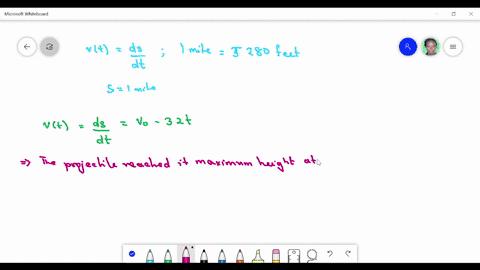 Microsoft Whiteboard
v(t) = ds/dt ; 1 mile = 5280 feet
S = 1 mile
v(t) = ds/dt = v₀ - 32t
⇒ The projectile reached it maximum height at